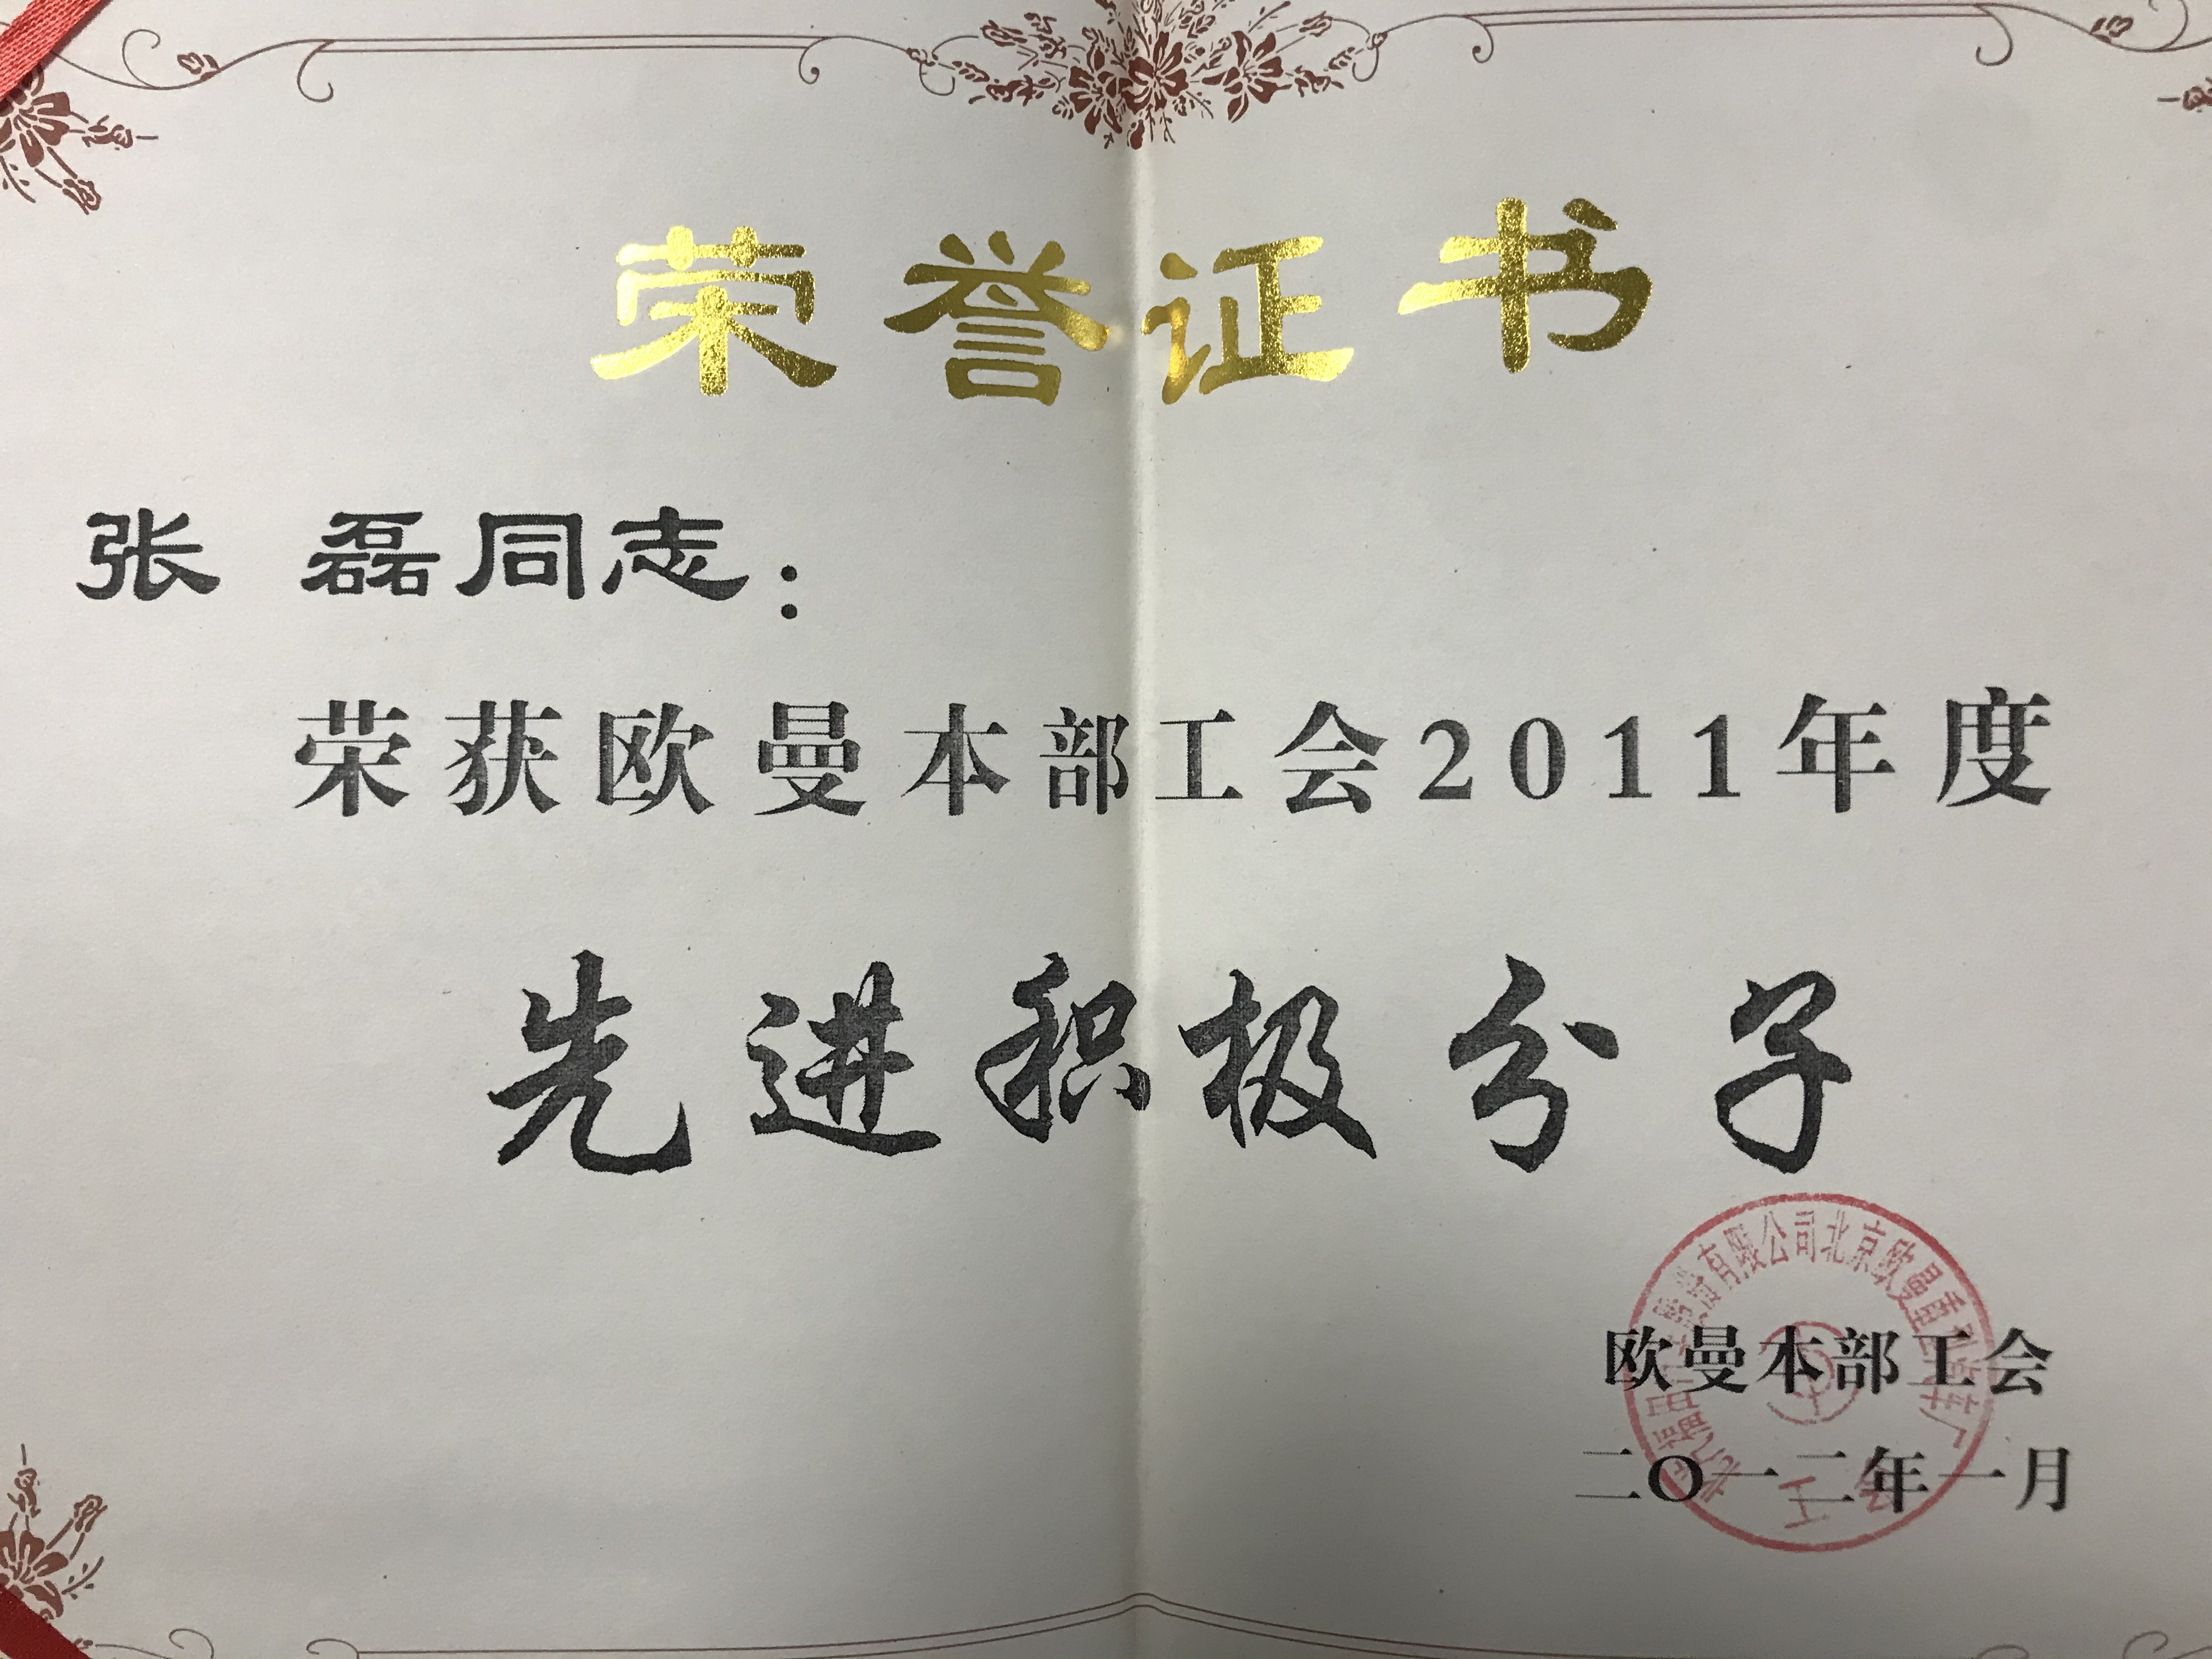 荣誉证书
张 磊同志：
荣获欧曼本部工会2011年度
先进积极分子
有限公司北京欧曼重
欧曼本部工会
二〇一二年一月
工会